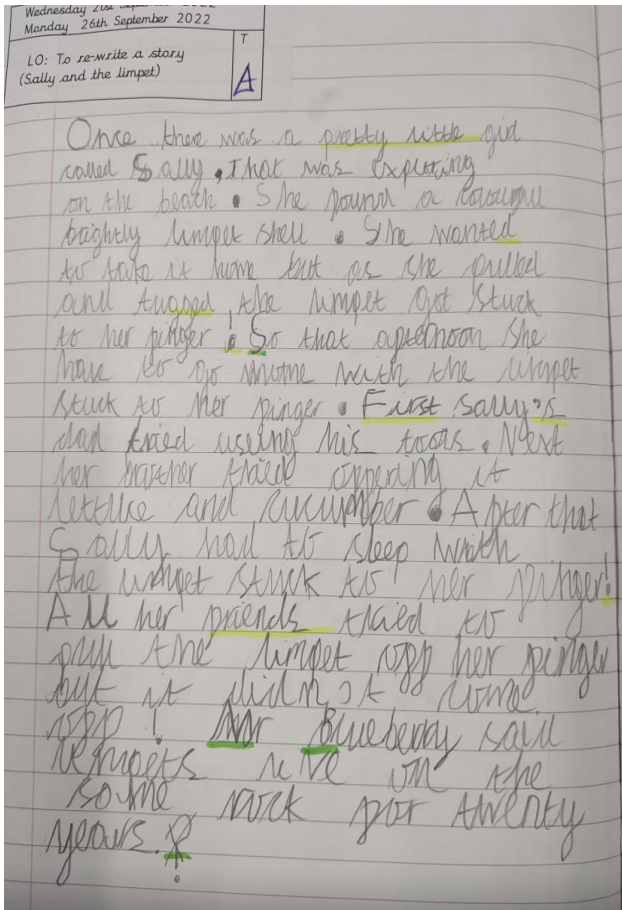 Wednesday 21st September 2022
Monday 26th September 2022
LO: To re-write a story
(Sally and the limpet)
T
A
Once there was a pretty little girl
called Sally, That was exploring
on the beach. She found a
brightly limpet shell. She wanted
to take it home but as she pulled
and tugged, the limpet got stuck
to her finger! So that afternoon she
have to go home with the limpet
stuck to her finger. First sally's
dad tried useing his tools. Next
her brother tried offering it
lettuce and cucumber. After that
Sally had to sleep with
the limpet stuck to her finger!
All her friends tried to
pull the limpet off her finger
but it did not come
off! Mr Blueberry said
limpets live on the
same rock for twenty
years.